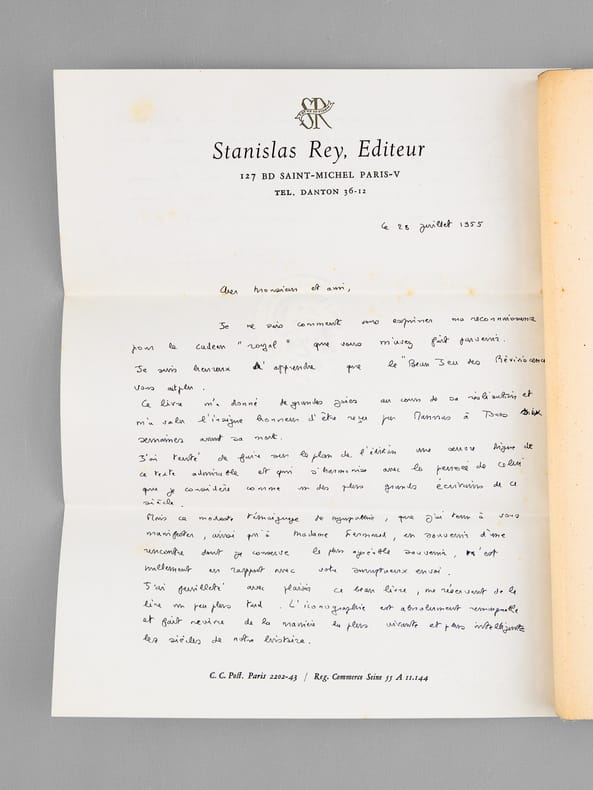 SR
Stanislas Rey, Editeur
127 BD SAINT-MICHEL PARIS-V
TEL. DANTON 36-12
le 28 juillet 1955
Cher Monsieur et ami,
Je ne sais comment vous exprimer ma reconnaissance
pour le cadeau "royal" que vous m'avez fait parvenir.
Je suis heureux d'apprendre que le "Beau Jeu des
vous ait plu.
Ce livre m'a donné de grandes joies au cours de sa réalisation et
m'a valu l'insigne honneur d'être reçu par à
semaines avant sa mort.
J'ai tenté de faire sur le plan de l'édition une œuvre digne de
ce texte admirable et qui s'harmonise avec la pensée de celui
que je considère comme un des plus grands écrivains de ce
siècle.
Mais ce modeste témoignage de sympathie, que j'ai tenu à vous
manifester, ainsi qu'à Madame en souvenir d'une
rencontre dont je conserve le plus agréable souvenir, n'est
nullement en rapport avec votre somptueux envoi.
J'ai feuilleté avec plaisir ce beau livre, me réservant de le
lire un peu plus tard. L'iconographie est absolument remarquable
et fait revivre de la manière la plus vivante et plus intelligente
les siècles de notre histoire.
C. C. Post. Paris 2202-43 / Reg. Commerce Seine 55 A 11.144